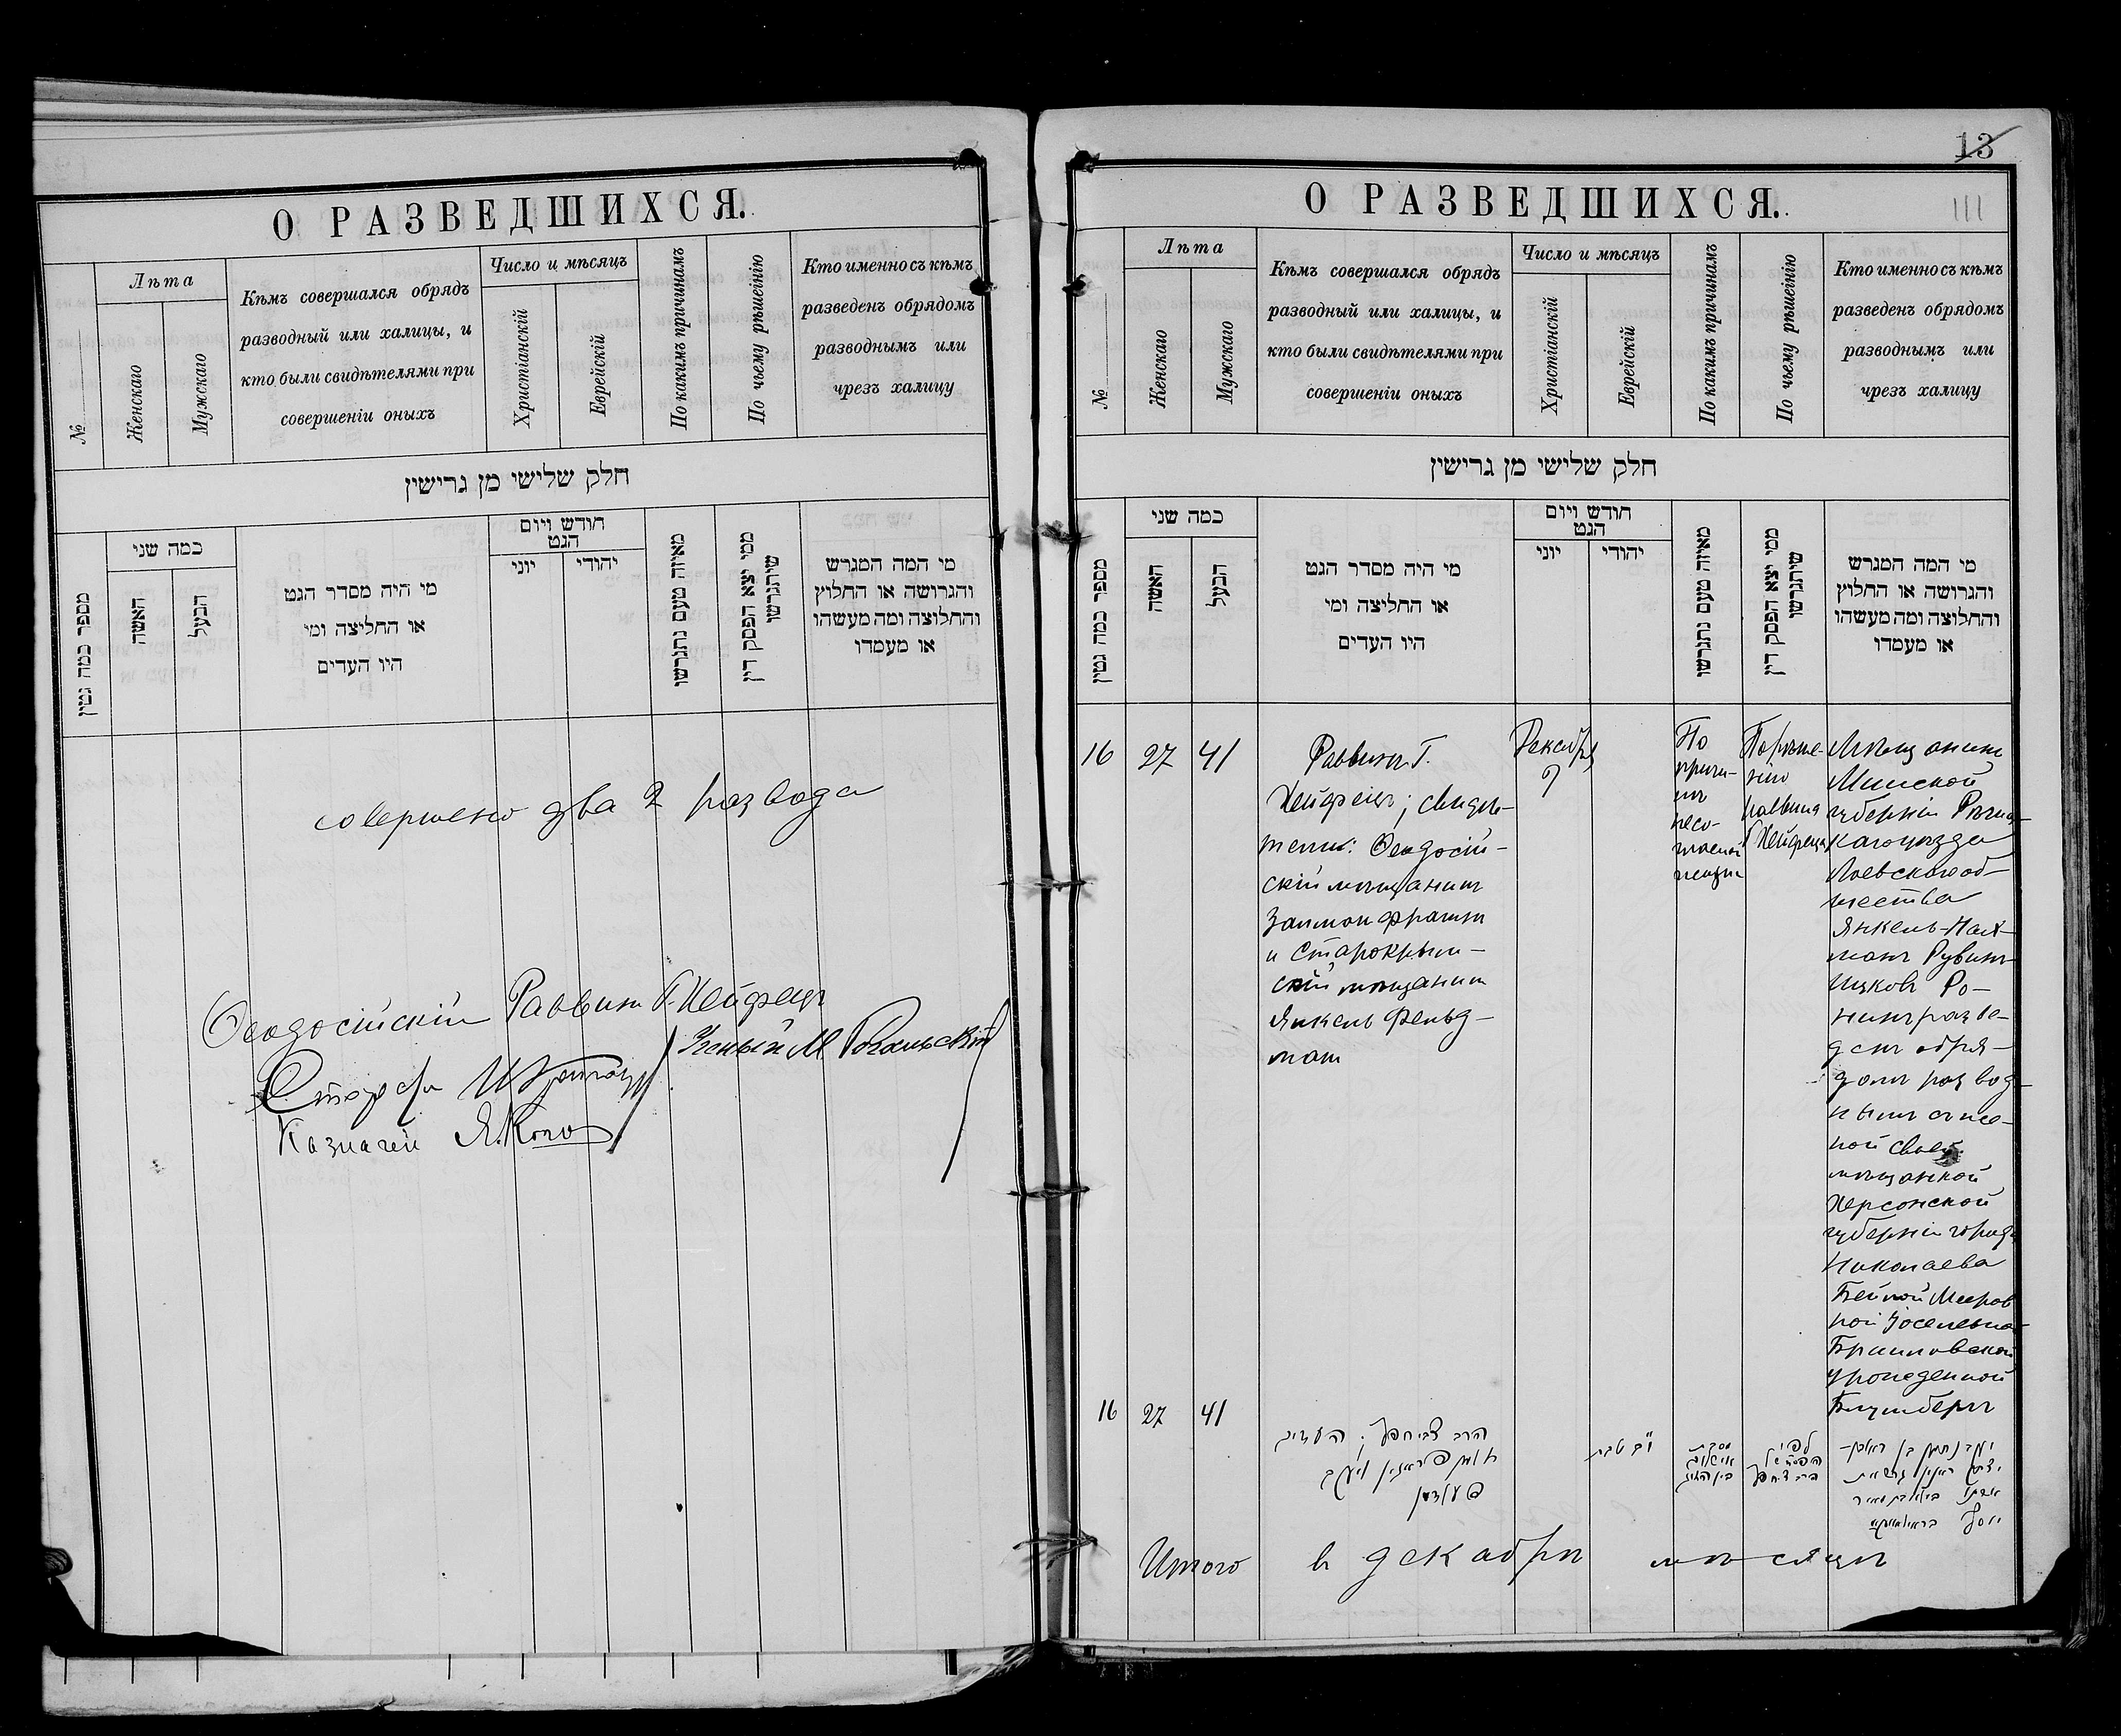 О РАЗВЕДШИХСЯ.
№
Лѣта
Женскаго
Мужскаго
Кѣмъ совершался обрядъ
разводный или халицы, и
кто были свидѣтелями при
совершеніи оныхъ
Число и мѣсяцъ
Христіанскій
Еврейскій
По какимъ причинамъ
По чьему рѣшенію
Кто именно съ кѣмъ
разведенъ обрядомъ
разводнымъ или
чрезъ халицу
חלק שלישי מן גרישין
מספר כמה גטין
כמה שני
האשה
הבעל
מי היה מסדר הגט
או החליצה ומי
היו העדים
חודש ויום
הגט
יוני
יהודי
מאיזה טעם נתגרשו
ממי יצא הפסק דין
שיתגרשו
מי המה המגרש
והגרושה או החלוץ
והחלוצה ומה מעשהו
או מעמדו
совершено два 2 развода
Ѳеодосійскій Раввинъ Г. Хейфецъ
Ученый М.
Староста
Казначей Я.
13
111
О РАЗВЕДШИХСЯ.
№
Лѣта
Женскаго
Мужскаго
Кѣмъ совершался обрядъ
разводный или халицы, и
кто были свидѣтелями при
совершеніи оныхъ
Число и мѣсяцъ
Христіанскій
Еврейскій
По какимъ причинамъ
По чьему рѣшенію
Кто именно съ кѣмъ
разведенъ обрядомъ
разводнымъ или
чрезъ халицу
חלק שלישי מן גרישין
מספר כמה גטין
כמה שני
האשה
הבעל
מי היה מסדר הגט
או החליצה ומי
היו העדים
חודש ויום
הגט
יוני
יהודי
מאיזה טעם נתגרשו
ממי יצא הפסק דין
שיתגרשו
מי המה המגרש
והגרושה או החלוץ
והחלוצה ומה מעשהו
או מעמדו
16 27 41
Раввинъ Г.
Хейфецъ; свидѣ-
тели: Ѳеодосій-
скій мѣщанинъ
Залман
и Старокрым-
скій мѣщанинъ
Янкель Фельд-
ман
Декабря
По
причи-
нѣ
несо-
гласной
жизни
По рѣше-
нію
раввина
Г Хейфеца
Мѣщанинъ
Минской
губерніи Рѣчиц-
каго уѣзда
Лоевского об-
щества
Янкель-Нах-
манъ Рувинъ-
Ицковъ Ро-
нинъ разве-
денъ обря-
домъ развод-
нымъ съ же-
ной своей
мѣщанкой
Херсонской
губерніи города
Николаева
Бейлой Мееров-
ной Іоселевной
Браиловской
урожденной
16 27 41
הרב צבי חפץ; העדים
ויעקב
פעלדמן
י"ב טבת
מסבת
לפי
יעקב נחמן בן ראובן-
Итого в декабрѣ мѣсяцѣ